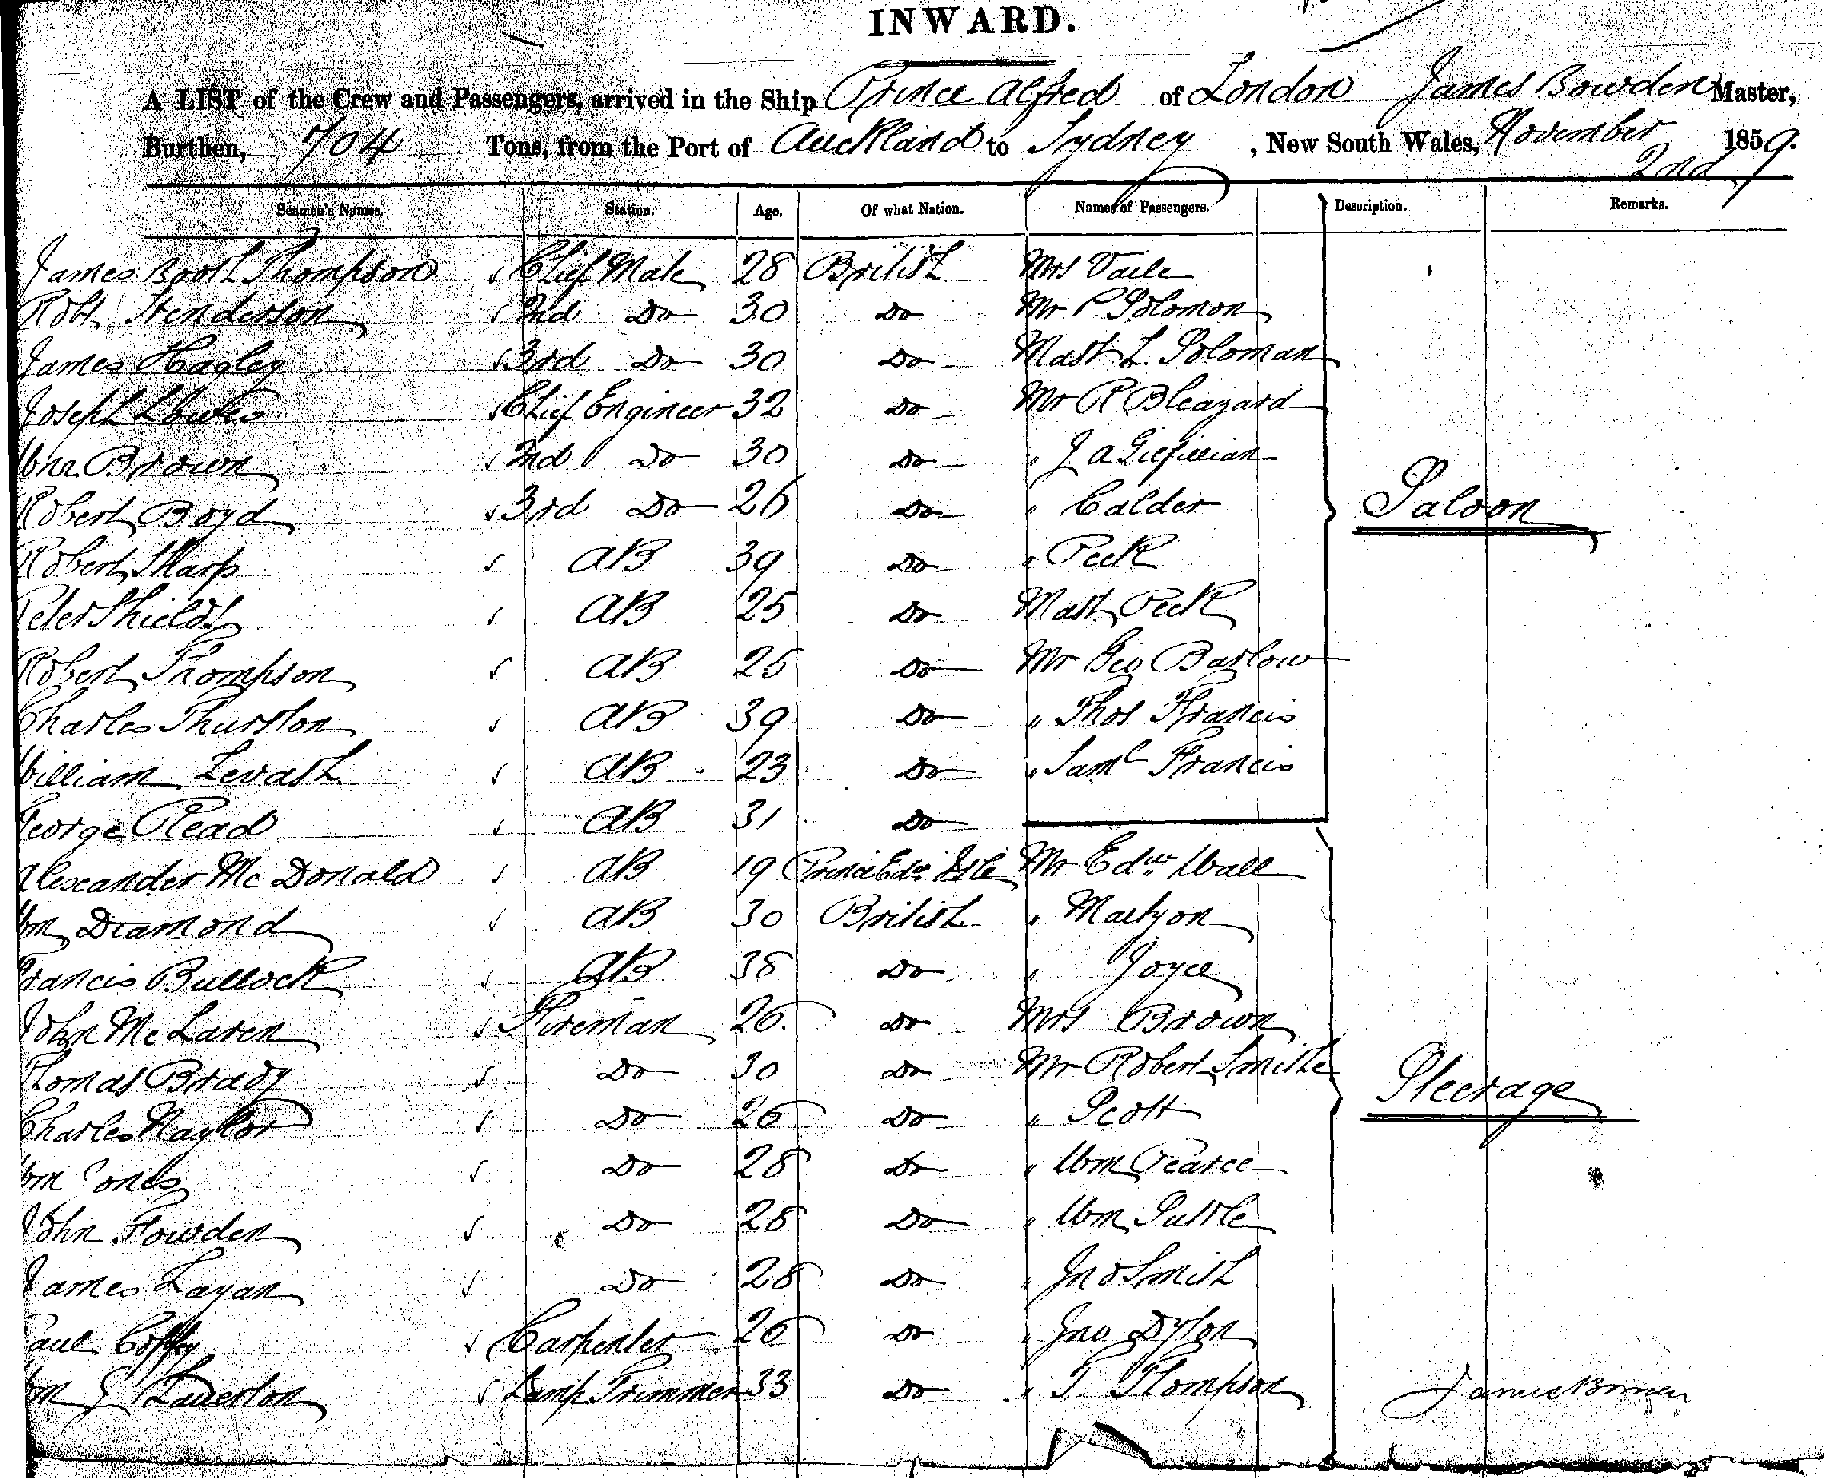 INWARD.
A LIST of the Crew and Passengers, arrived in the Ship Prince Alfred of London James Bowden Master,
Burthen, 704 Tons, from the Port of Auckland to Sydney, New South Wales, November 2nd 1859.
Seamen's Names. Station. Age. Of what Nation. Names of Passengers. Description. Remarks.
James Booth Thompson Chief Mate 28 British Mrs Vaile
Robt Henderson 2nd Do 30 Do Mr P Solomon
James Hagley 3rd Do 30 Do Mast L Soloman
Joseph Chief Engineer 32 Do Mr R Bleazard
Wm Brown 2nd Do 30 Do " J A Gilfillian
Robert Boyd 3rd Do 26 Do " Calder Saloon
Robert Sharp AB 39 Do " Peck
Peter Shields AB 25 Do Mast Peck
Robert Thompson AB 25 Do Mr Geo Barlow
Charles Thurston AB 39 Do " Thos Francis
William Levash AB 23 Do " Saml Francis
George Read AB 31 Do
Alexander McDonald AB 19 Prince Edw Isle Mr Edwd Wall
Wm Diamond AB 30 British " Martyon
Francis Bullock AB 38 Do " Joyce
John McLaren Fireman 26 Do Mrs Brown
Thomas Brady Do 30 Do Mr Robert Smith Steerage
Charles Naylor Do 26 Do " Scott
Wm Jones Do 28 Do " Wm Pearce
John Fowden Do 28 Do " Wm Suttle
James Layan Do 28 Do " Jno Smith
Paul Coffey Carpenter 26 Do " Jno Dyson
Wm J Lamp Trimmer 33 Do " T Thompson James Bowden